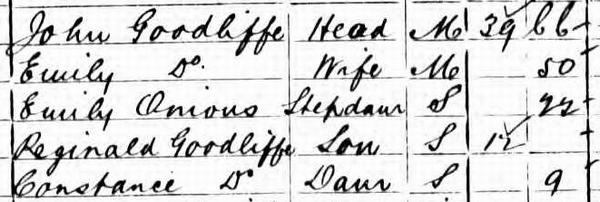 John Goodliffe Head M 39 66
Emily Do. Wife M 50
Emily Onions Stepdaur S 22
Reginald Goodliffe Son S 12
Constance Do Daur S 9